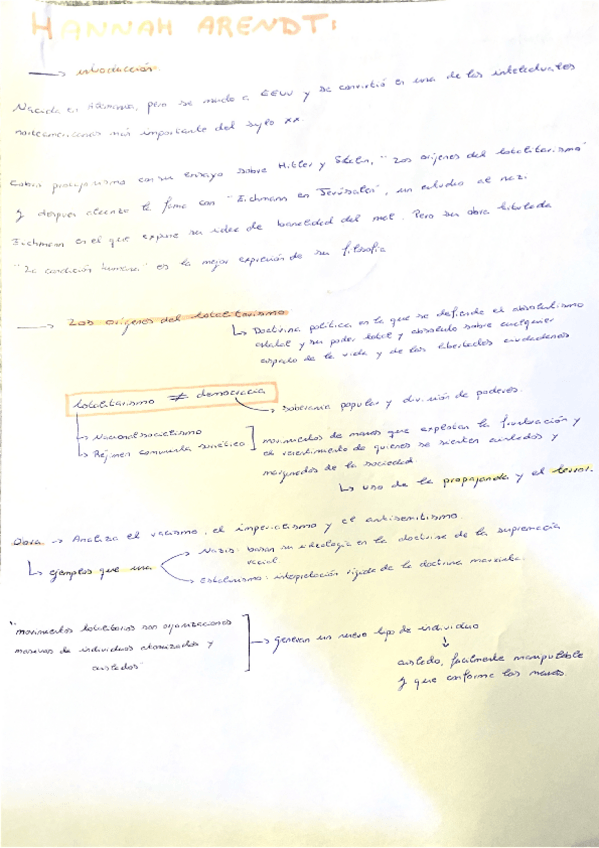 HANNAH ARENDT:
→ introducción.
Nacida en Alemania, pero se mudó a EEUU y se convirtió en una de las intelectuales
norteamericanas más importante del siglo XX.
Cobra protagonismo con su ensayo sobre Hitler y Stalin, "Los orígenes del totalitarismo"
y después alcanzó la fama con "Eichmann en Jerusalén", un estudio al nazi
Eichmann en el que expone su idea de banalidad del mal. Pero su obra titulada
"La condición humana" es la mejor expresión de su filosofía
→ Los orígenes del totalitarismo
↳ Doctrina política en la que se defiende el absolutismo
estatal y su poder total y absoluto sobre cualquier
aspecto de la vida y de las libertades ciudadanas
totalitarismo ≠ democracia
→ Soberanía popular y división de poderes.
Nacionalsocialismo
Régimen comunista soviético
movimientos de masas que explotan la frustración y
el resentimiento de quienes se sienten aislados y
marginados de la sociedad.
↳ uso de la propaganda y el terror.
Obra → Analiza el racismo, el imperialismo y el antisemitismo
↳ ejemplos que usa
→ Nazis: basan su ideología en la doctrina de la supremacía
racial
→ Estalinismo: interpretación rígida de la doctrina marxista.
"movimientos totalitarios son organizaciones
masivas de individuos atomizados y
aislados"
→ Generan un nuevo tipo de individuo
↓
aislado, facilmente manipulable
y que conforma las masas.